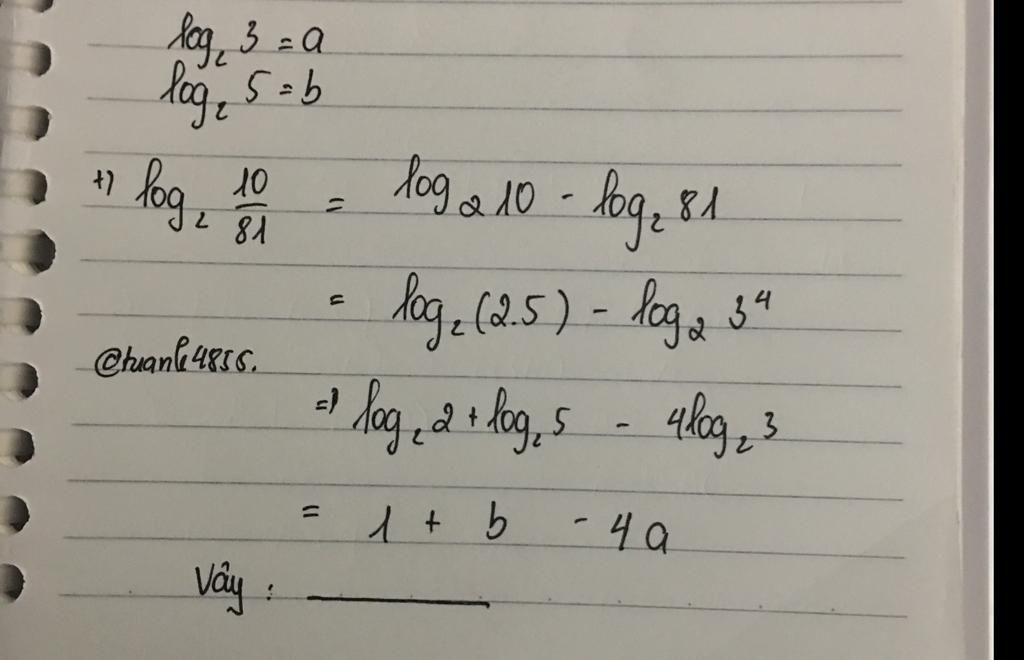 log₂ 3 = a
log₂ 5 = b
+) log₂ 10/81 = log₂ 10 - log₂ 81
= log₂ (2.5) - log₂ 3⁴
@tuanle4856.
=) log₂ 2 + log₂ 5 - 4log₂ 3
= 1 + b - 4a
Vây :